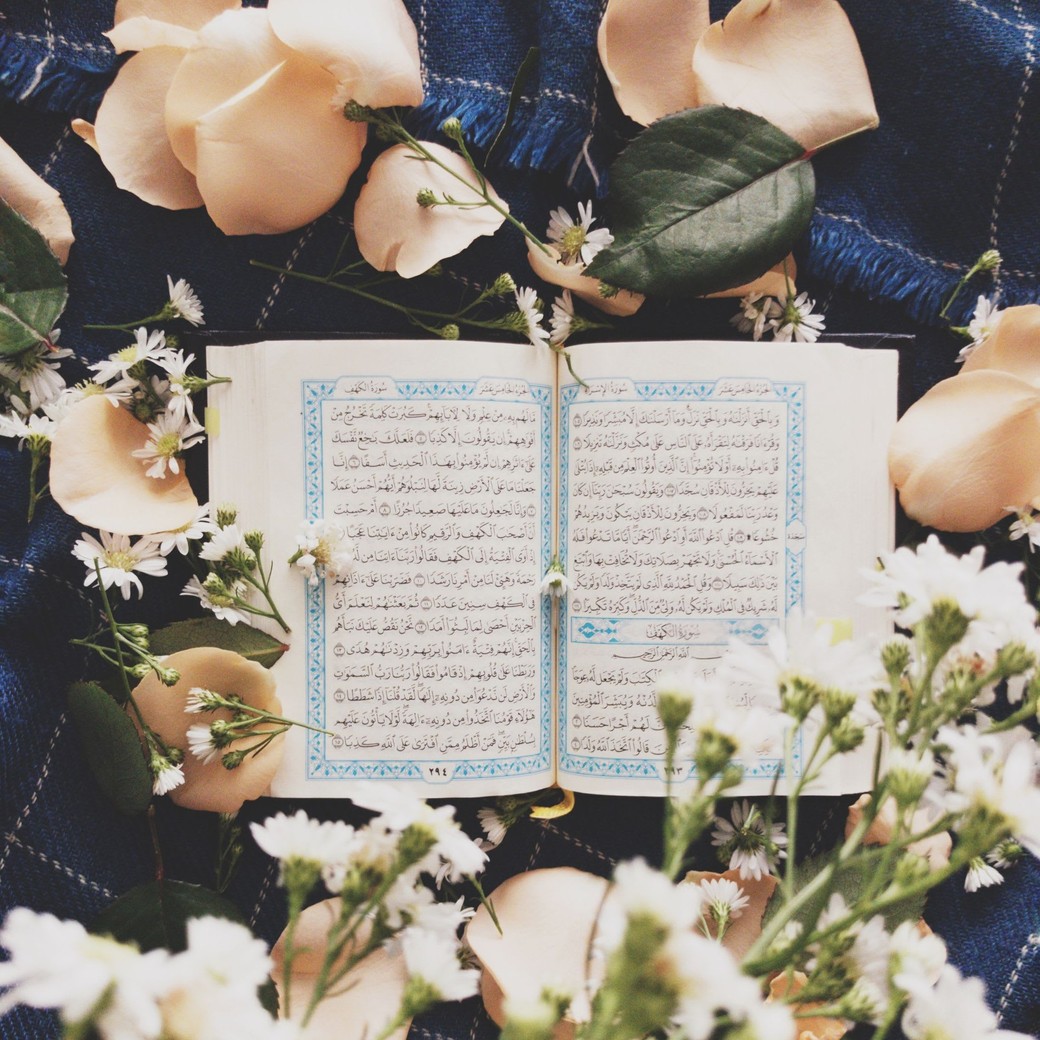 الجزء الخامس عشر
سورة الإسراء
وَبِٱلْحَقِّ أَنزَلْنَٰهُ وَبِٱلْحَقِّ نَزَلَ وَمَآ أَرْسَلْنَٰكَ إِلَّا مُبَشِّرًا وَنَذِيرًا ١٠٥
وَقُرْءَانًا فَرَقْنَٰهُ لِتَقْرَأَهُۥ عَلَى ٱلنَّاسِ عَلَىٰ مُكْثٍ وَنَزَّلْنَٰهُ تَنزِيلًا ١٠٦
قُلْ ءَامِنُوا۟ بِهِۦٓ أَوْ لَا تُؤْمِنُوٓا۟ إِنَّ ٱلَّذِينَ أُوتُوا۟ ٱلْعِلْمَ مِن قَبْلِهِۦٓ إِذَا يُتْلَىٰ
عَلَيْهِمْ يَخِرُّونَ لِلْأَذْقَانِ سُجَّدًا ١٠٧ وَيَقُولُونَ سُبْحَٰنَ رَبِّنَآ إِن كَانَ
وَعْدُ رَبِّنَا لَمَفْعُولًا ١٠٨ وَيَخِرُّونَ لِلْأَذْقَانِ يَبْكُونَ وَيَزِيدُهُمْ
خُشُوعًا ۩ ١٠٩ قُلِ ٱدْعُوا۟ ٱللَّهَ أَوِ ٱدْعُوا۟ ٱلرَّحْمَٰنَ أَيًّا مَّا تَدْعُوا۟ فَلَهُ
سجدة
ٱلْأَسْمَآءُ ٱلْحُسْنَىٰ وَلَا تَجْهَرْ بِصَلَاتِكَ وَلَا تُخَافِتْ بِهَا وَٱبْتَغِ
بَيْنَ ذَٰلِكَ سَبِيلًا ١١٠ وَقُلِ ٱلْحَمْدُ لِلَّهِ ٱلَّذِى لَمْ يَتَّخِذْ وَلَدًا وَلَمْ يَكُن
لَّهُۥ شَرِيكٌ فِى ٱلْمُلْكِ وَلَمْ يَكُن لَّهُۥ وَلِىٌّ مِّنَ ٱلذُّلِّ وَكَبِّرْهُ تَكْبِيرًۢا ١١١
سورة الكهف
ٱللَّهِ ٱلرَّحْمَٰنِ ٱلرَّحِيمِ
ٱلْكِتَٰبَ وَلَمْ يَجْعَل لَّهُۥ عِوَجَا
لَّدُنْهُ وَيُبَشِّرَ ٱلْمُؤْمِنِينَ
لَهُمْ أَجْرًا حَسَنًا ٢
قَالُوا۟ ٱتَّخَذَ ٱللَّهُ وَلَدًا ٤
٢٩٣
الجزء الخامس عشر
سورة الكهف
مَّا لَهُم بِهِۦ مِنْ عِلْمٍ وَلَا لِـَٔابَآئِهِمْ كَبُرَتْ كَلِمَةً تَخْرُجُ مِنْ
أَفْوَٰهِهِمْ إِن يَقُولُونَ إِلَّا كَذِبًا ٥ فَلَعَلَّكَ بَٰخِعٌ نَّفْسَكَ
عَلَىٰٓ ءَاثَٰرِهِمْ إِن لَّمْ يُؤْمِنُوا۟ بِهَٰذَا ٱلْحَدِيثِ أَسَفًا ٦ إِنَّا
جَعَلْنَا مَا عَلَى ٱلْأَرْضِ زِينَةً لَّهَا لِنَبْلُوَهُمْ أَيُّهُمْ أَحْسَنُ عَمَلًا
٧ وَإِنَّا لَجَٰعِلُونَ مَا عَلَيْهَا صَعِيدًا جُرُزًا ٨ أَمْ حَسِبْتَ
أَنَّ أَصْحَٰبَ ٱلْكَهْفِ وَٱلرَّقِيمِ كَانُوا۟ مِنْ ءَايَٰتِنَا عَجَبًا
٩ إِذْ أَوَى ٱلْفِتْيَةُ إِلَى ٱلْكَهْفِ فَقَالُوا۟ رَبَّنَآ ءَاتِنَا مِن
رَحْمَةً وَهَيِّئْ لَنَا مِنْ أَمْرِنَا رَشَدًا ١٠ فَضَرَبْنَا عَلَىٰٓ ءَاذَانِهِمْ
فِى ٱلْكَهْفِ سِنِينَ عَدَدًا ١١ ثُمَّ بَعَثْنَٰهُمْ لِنَعْلَمَ أَىُّ
ٱلْحِزْبَيْنِ أَحْصَىٰ لِمَا لَبِثُوٓا۟ أَمَدًا ١٢ نَّحْنُ نَقُصُّ عَلَيْكَ نَبَأَهُم
بِٱلْحَقِّ إِنَّهُمْ فِتْيَةٌ ءَامَنُوا۟ بِرَبِّهِمْ وَزِدْنَٰهُمْ هُدًى ١٣
وَرَبَطْنَا عَلَىٰ قُلُوبِهِمْ إِذْ قَامُوا۟ فَقَالُوا۟ رَبُّنَا رَبُّ ٱلسَّمَٰوَٰتِ
وَٱلْأَرْضِ لَن نَّدْعُوَا۟ مِن دُونِهِۦٓ إِلَٰهًا لَّقَدْ قُلْنَآ إِذًا شَطَطًا ١٤
هَٰٓؤُلَآءِ قَوْمُنَا ٱتَّخَذُوا۟ مِن دُونِهِۦٓ ءَالِهَةً لَّوْلَا يَأْتُونَ عَلَيْهِم
بِسُلْطَٰنٍۭ بَيِّنٍ فَمَنْ أَظْلَمُ مِمَّنِ ٱفْتَرَىٰ عَلَى ٱللَّهِ كَذِبًا ١٥
٢٩٤